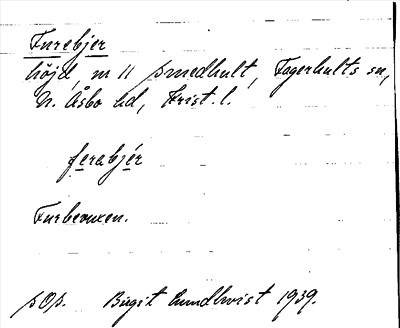 Furebjer
höjd, nr 11 Smedhult, Fagerhults sn,
N. Åsbo hd, Krist. l.
ferabjér
Furbevuxen.
pOp. Birgit Lundkvist 1939.